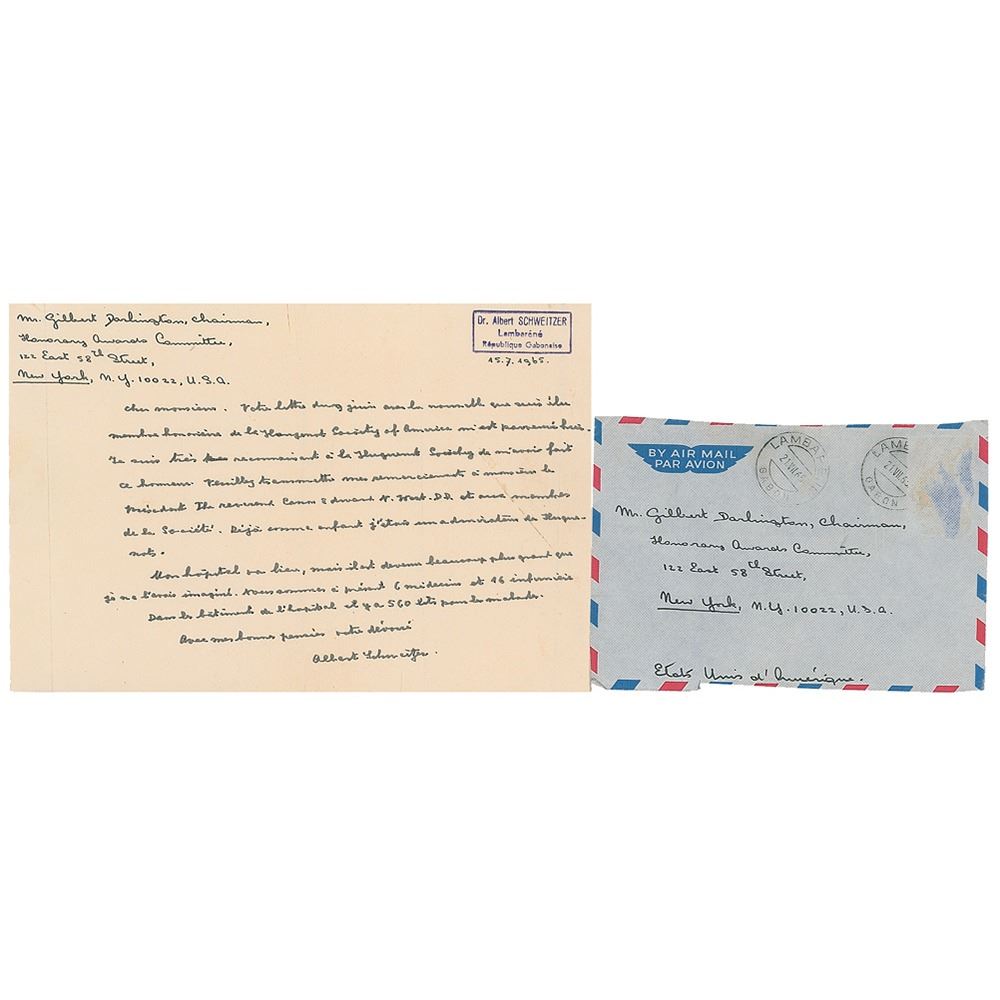 Mr. Gilbert Darlington, Chairman,
Honorary Awards Committee,
122 East 58th Street,
New York, N.Y. 10022, U.S.A.
Dr. Albert SCHWEITZER
Lambaréné
République Gabonaise
15.7.1965.
cher monsieur. Votre lettre du 9 juin avec la nouvelle que suis élu
membre honoraire de la Society of America m'est parvenue hier.
Je suis très reconnaissant à la Huguenot Society de m'avoir fait
ce honneur. Veuillez transmettre mes remerciements à monsieur le
Président The reverend Canon Edward N. West. D.D. et aux membres
de la Société. Déjà comme enfant j'étais un admirateur de Hugue-
nots.
Mon hôpital va bien, mais il est devenu beaucoup plus grand que
je ne l'avais imaginé. Nous sommes à présent 6 médecins et 16
Dans les bâtiments de l'hôpital il y a 560 lits pour les malades.
Avec mes bonnes pensées votre dévoué
Albert Schweitzer.
BY AIR MAIL
PAR AVION
GABON
21 VII 65
GABON
Mr. Gilbert Darlington, Chairman,
Honorary Awards Committee,
122 East 58th Street,
New York, N.Y. 10022, U.S.A.
Etats Unis d'Amérique.